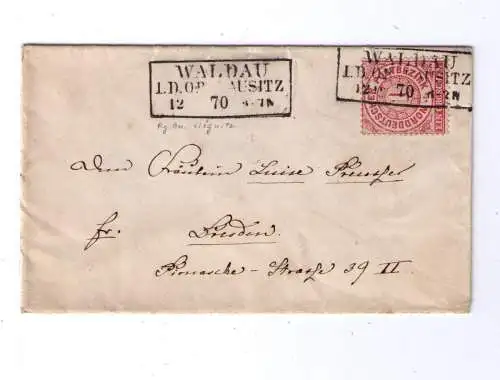 WALDAU
I.D.OBERLAUSITZ
12 70 4-7N
WALDAU
I.D.O USITZ
12 70 N
NORDDEUTSCHER
Rg. Bez. Liegnitz
Dem Fräulein Luise Preusser
fr. Dresden.
Pirnaische-Strasse 39 II